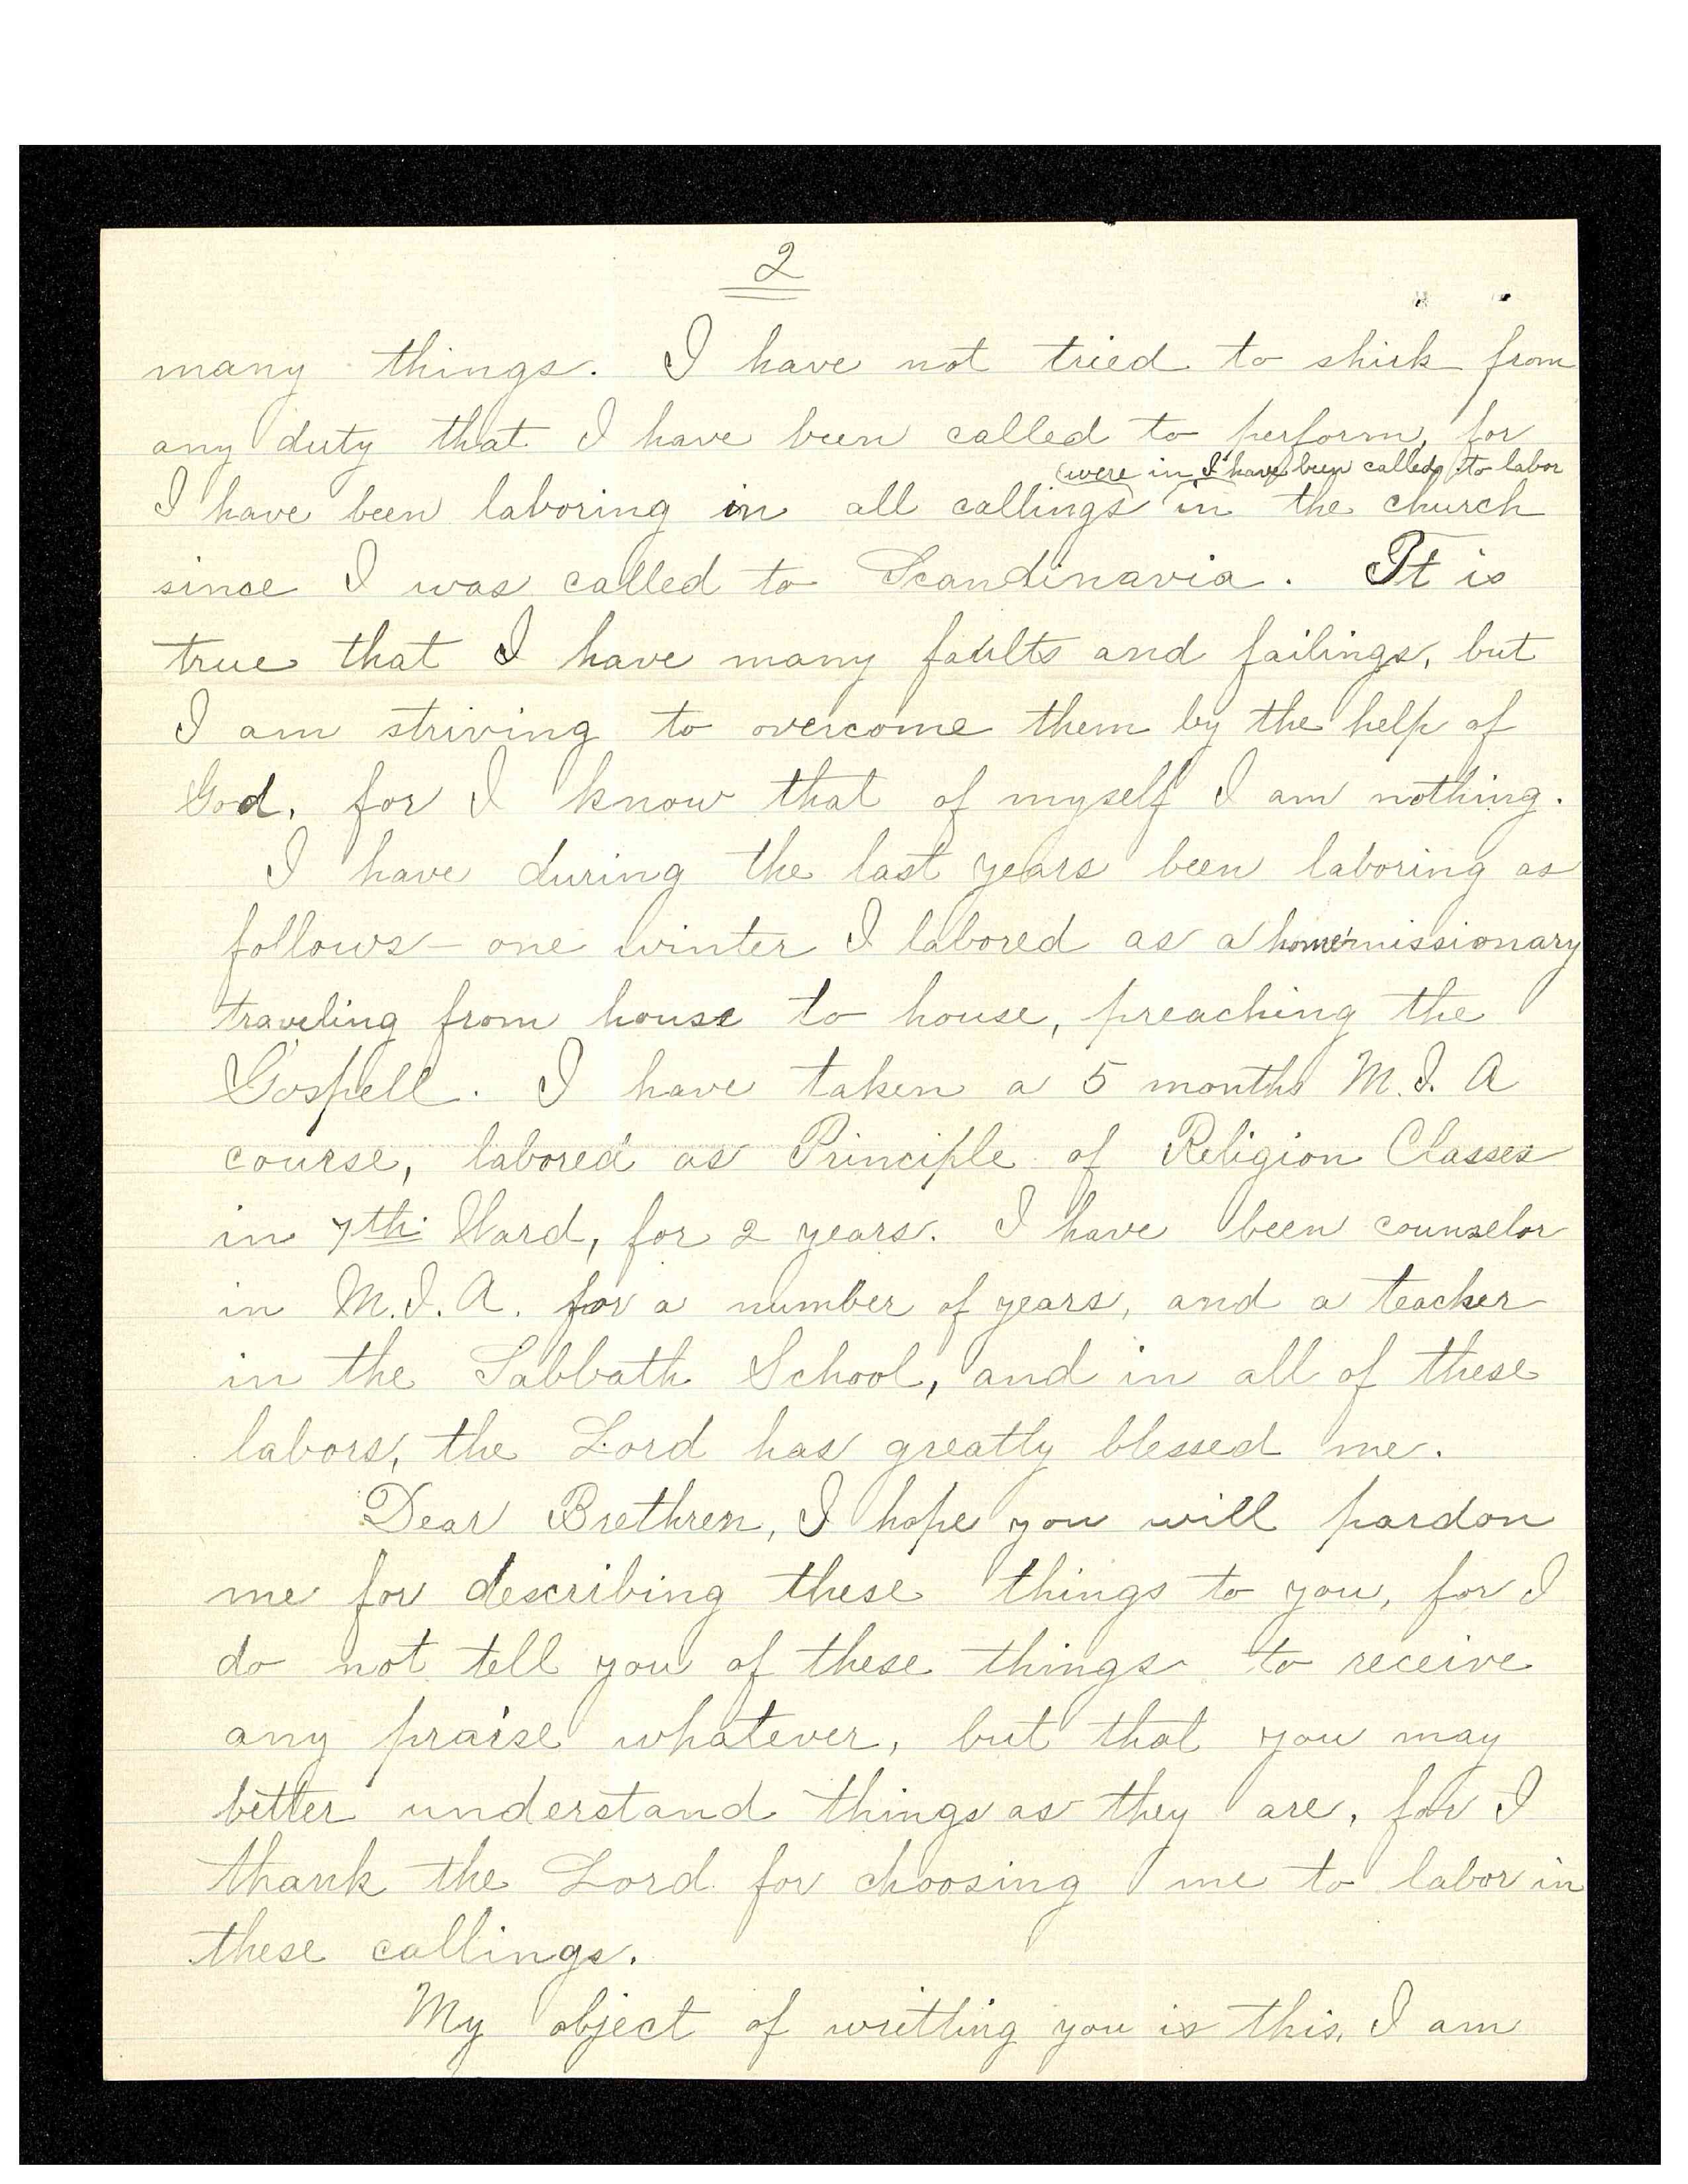 2
many things. I have not tried to shirk from
any duty that I have been called to perform, for
(were in I have been called to labor
I have been laboring in all callings in the church
since I was called to Scandinavia. It is
true that I have many faults and failings, but
I am striving to overcome them by the help of
God, for I know that of myself I am nothing.
I have during the last years been laboring as
follows – one winter I labored as a home missionary
traveling from house to house, preaching the
Gospell. I have taken a 5 months M.I. A
course, labored as Principle of Religion Classes
in 7th Ward, for 2 years. I have been counselor
in M.I.A. for a number of years, and a teacher
in the Sabbath School, and in all of these
labors, the Lord has greatly blessed me.
Dear Brethren, I hope you will pardon
me for describing these things to you, for I
do not tell you of these things to receive
any praise whatever, but that you may
better understand things as they are, for I
thank the Lord for choosing me to labor in
these callings.
My object of writting you is this, I am